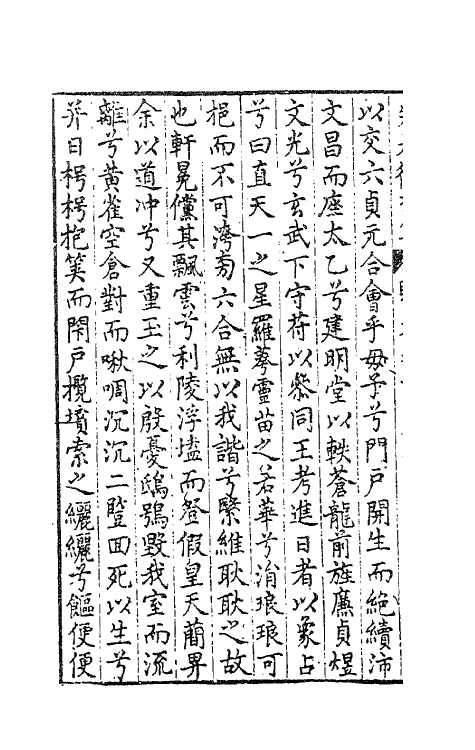 以交六貞元合會乎毋予兮門戸開生而絕續沛
文昌而麾太乙兮建明堂以軼蒼龍前旌廉貞煜
文光兮玄武下守苻以叅同王考進日者以象占
兮曰直天一之星羅蕚靈苗之若華兮淯琅琅可
挹而不可濟旉六合無以我諧兮繄維耿耿之故
也軒冕儻其飄雲兮利陵浮壒而登假皇天蕳畀
余以道冲兮又重玉之以殷憂鴟鴞毀我室而流
離兮黄雀空倉對而啾啁沉沉二豎回死以生兮
荓日枵枵抱筴而閇戸攬墳索之纚纚兮饇便便